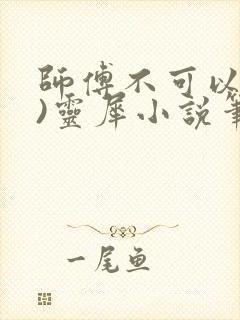 師傅不可以
)靈犀小說筆
一尾鱼